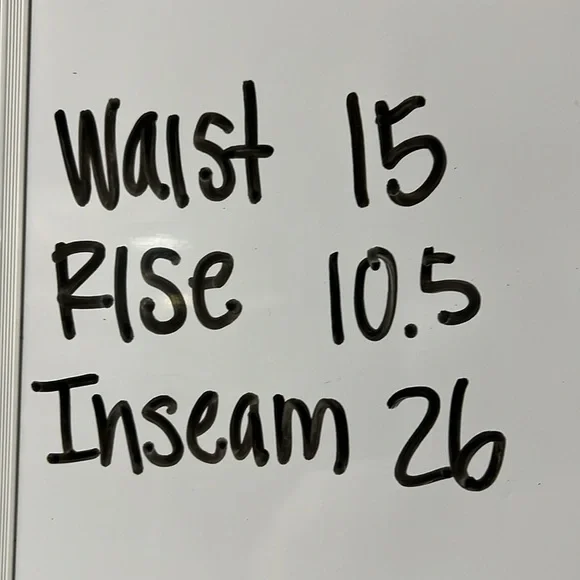 Waist 15
Rise 10.5
Inseam 26